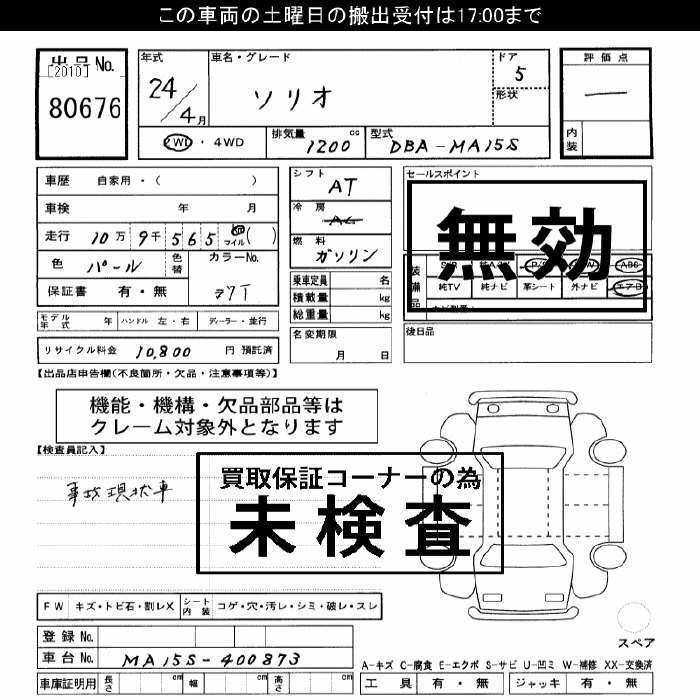 この車両の土曜日の搬出受付は17:00まで
出品No.
[2010]
80676
年式
24/4月
車名・グレード
ソリオ
ドア
5
形状
評価点
内装
2WD ・ 4WD
排気量 1200 cc
型式 DBA-MA15S
車歴 自家用・( )
車検 年 月
走行 10万 9千 5 6 5 km マイル ( )
色 パール
色替
カラーNo.
保証書 有・無
Z7T
モデル年式 年 ハンドル 左・右 ディーラー・並行
リサイクル料金 10,800 円 預託済
シフト
AT
冷房
AC
燃料
ガソリン
乗車定員 名
積載量 kg
総重量 kg
名変期限
月 日
セールスポイント
無効
装備品
純TV 純ナビ 革シート 外ナビ エアB
P/S P/W ABS
後日品
【出品店申告欄(不良箇所・欠品・注意事項等)】
機能・機構・欠品部品等は
クレーム対象外となります
【検査員記入】
事故現状車
買取保証コーナーの為
未検査
FW キズ・トビ石・割レX シート内装 コゲ・穴・汚レ・シミ・破レ・スレ
登録No.
車台No. MA15S-400873
車庫証明用 長さ cm 幅 cm 高さ cm
スペア
A-キズ C-腐食 E-エクボ S-サビ U-凹ミ W-補修 XX-交換済
工具 有・無 ジャッキ 有・無